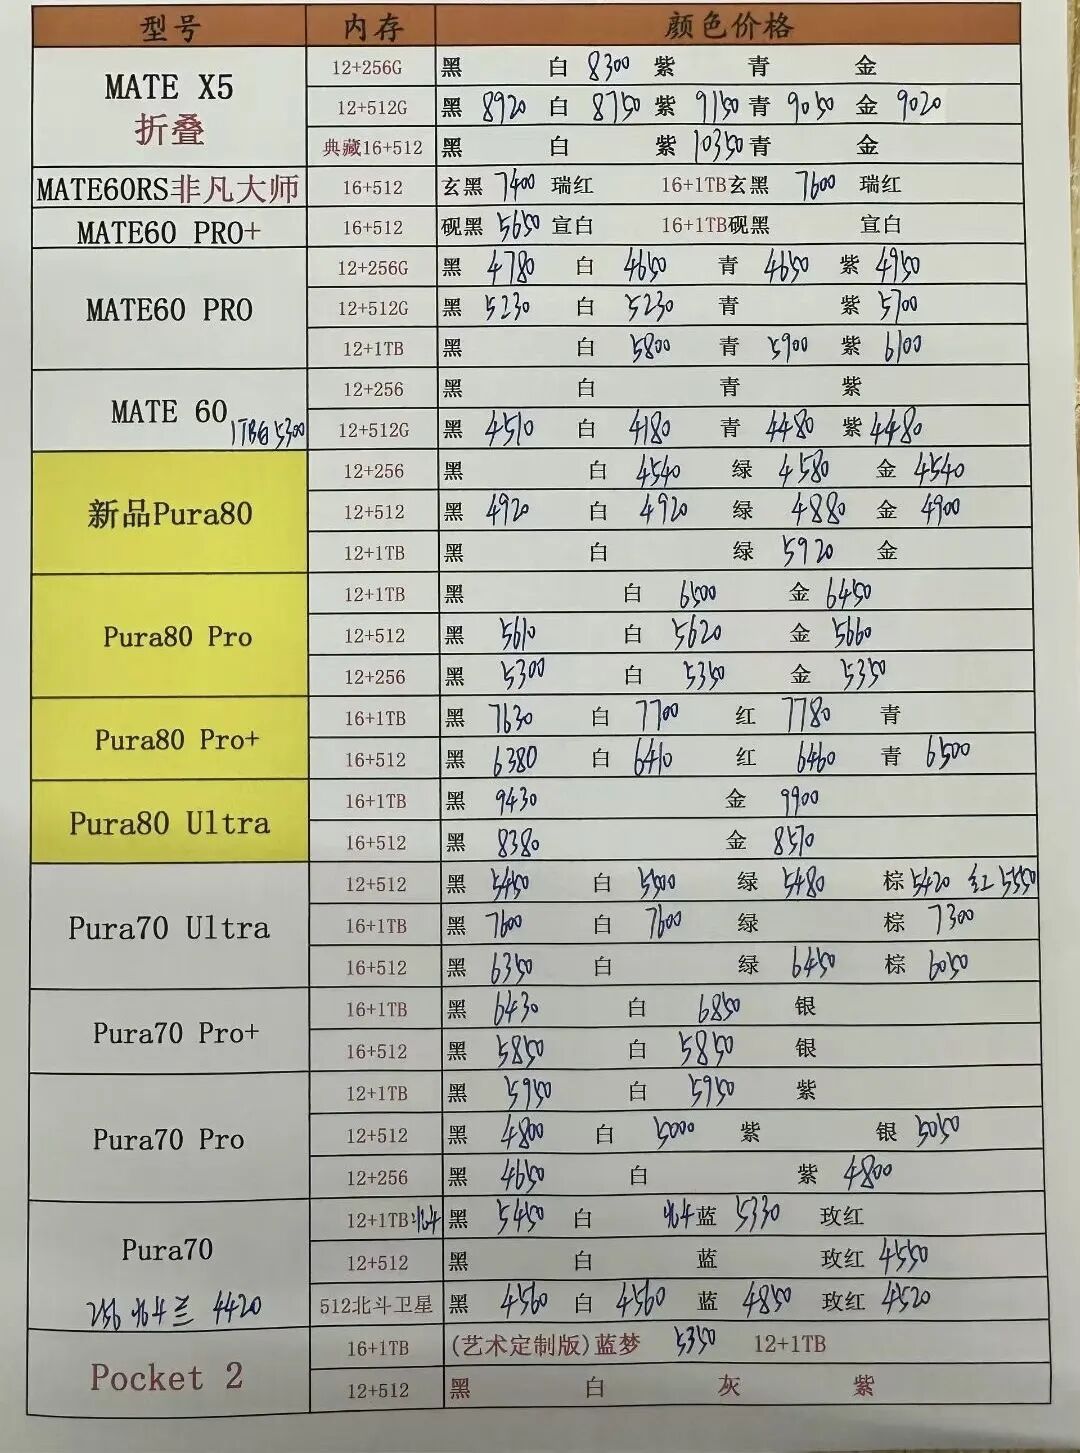 型号 内存 颜色价格
MATE X5 折叠 12+256G 黑 白 8300 紫 青 金
12+512G 黑 8920 白 8750 紫 9150 青 9050 金 9020
典藏16+512 黑 白 紫 10350 青 金
MATE60RS非凡大师 16+512 玄黑 7400 瑞红 16+1TB玄黑 7600 瑞红
MATE60 PRO+ 16+512 砚黑 5650 宣白 16+1TB砚黑 宣白
MATE60 PRO 12+256G 黑 4780 白 4650 青 4650 紫 4950
12+512G 黑 5230 白 5230 青 紫 5700
12+1TB 黑 白 5800 青 5900 紫 6100
MATE 60 1TB白 5300 12+256 黑 白 青 紫
12+512G 黑 4510 白 4180 青 4480 紫 4480
新品Pura80 12+256 黑 白 4540 绿 4580 金 4540
12+512 黑 4920 白 4920 绿 4880 金 4900
12+1TB 黑 白 绿 5920 金
Pura80 Pro 12+1TB 黑 白 6500 金 6450
12+512 黑 5610 白 5620 金 5660
12+256 黑 5300 白 5350 金 5350
Pura80 Pro+ 16+1TB 黑 7630 白 7700 红 7780 青
16+512 黑 6380 白 6410 红 6460 青 6500
Pura80 Ultra 16+1TB 黑 9430 金 9900
16+512 黑 8380 金 8570
Pura70 Ultra 12+512 黑 5450 白 5500 绿 5480 棕 5420 红 5550
16+1TB 黑 7600 白 7600 绿 棕 7300
16+512 黑 6350 白 绿 6450 棕 6050
Pura70 Pro+ 16+1TB 黑 6430 白 6850 银
16+512 黑 5850 白 5850 银
Pura70 Pro 12+1TB 黑 5950 白 5950 紫
12+512 黑 4800 白 5000 紫 银 5050
12+256 黑 4650 白 紫 4800
Pura70 12+1TB 北斗 黑 5450 白 北斗 蓝 5330 玫红
12+512 黑 白 蓝 玫红 4550
256 北斗兰 4420 512北斗卫星 黑 4560 白 4560 蓝 4850 玫红 4520
Pocket 2 16+1TB (艺术定制版)蓝梦 5350 12+1TB
12+512 黑 白 灰 紫